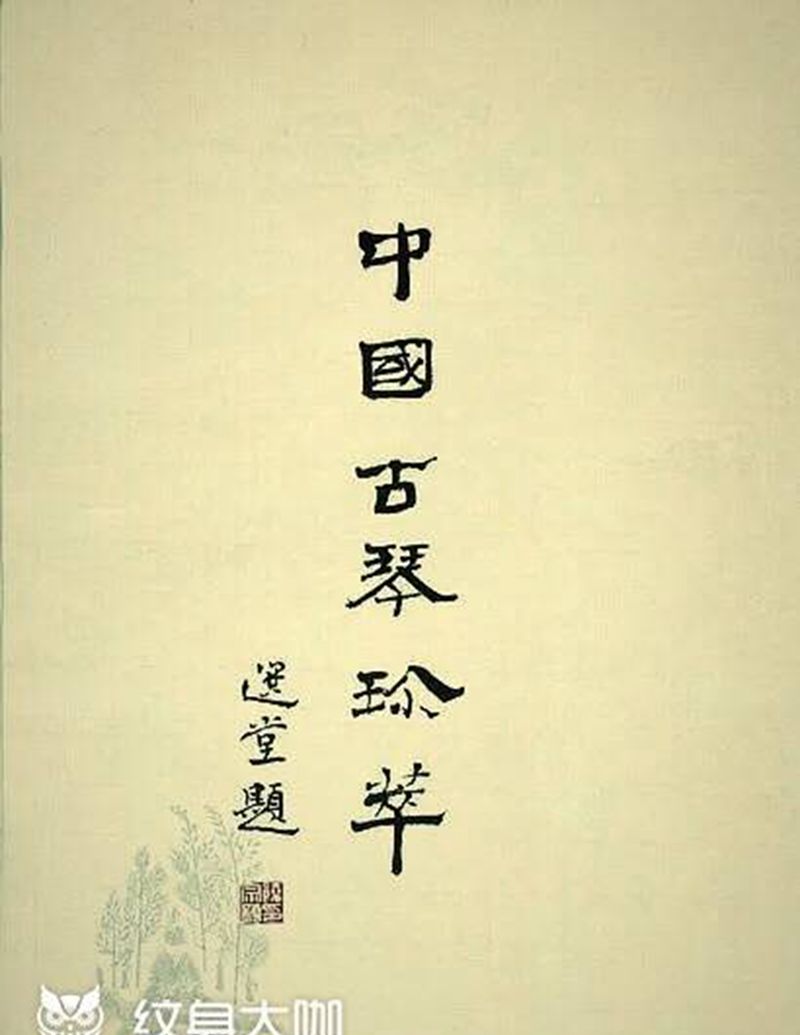 中國古琴珎萃
選堂題
纹身大咖